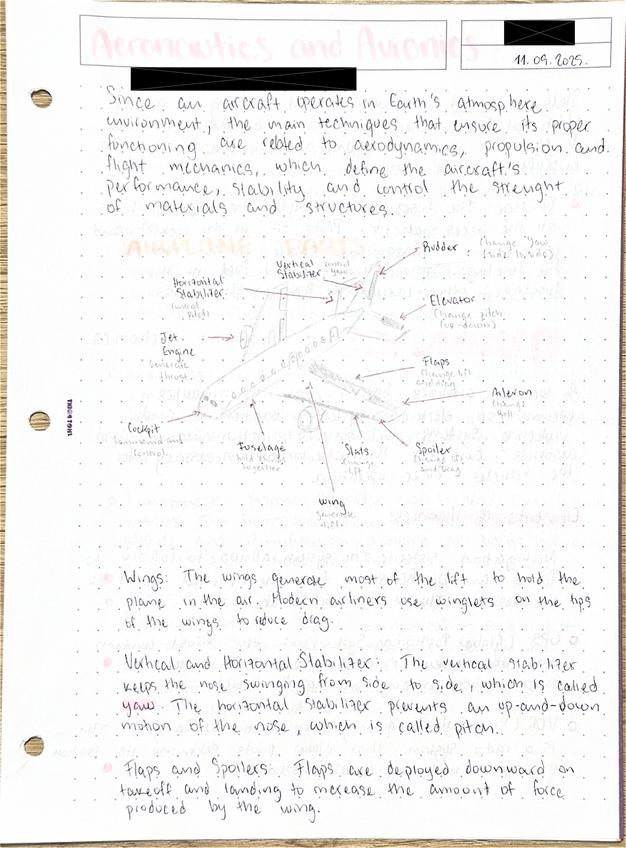 Aeronautics and Avionics
11.09.2025.
Since an aircraft operates in Earth's atmosphere
environment, the main techniques that ensure its proper
functioning are related to aerodynamics, propulsion and
flight mechanics, which define the aircraft's
performance, stability and control the strenght
of materials and structures.
AIRPLANE PARTS
Rudder: change yaw
(side to side)
Vertical
Stabilizer
control
yaw
Horizontal
Stabilizer
control
pitch
Elevator
(change pitch
(up-down)
Jet
Engine
generate
thrust
Flaps
change lift
and drag
Aileron
change
roll
Cockpit
command and
control
Fuselage
hold
together
Slats
change
lift
Spoiler
change
and drag
Wing
generate
lift
Wings: The wings generate most of the lift to hold the
plane in the air. Modern airliners use winglets on the tips
of the wings to reduce drag.
Vertical and Horizontal Stabilizer: The vertical stabilizer
keeps the nose swinging from side to side, which is called
yaw. The horizontal stabilizer prevents an up-and-down
motion of the nose, which is called pitch.
Flaps and Spoilers: Flaps are deployed downward on
takeoff and landing to increase the amount of force
produced by the wing.